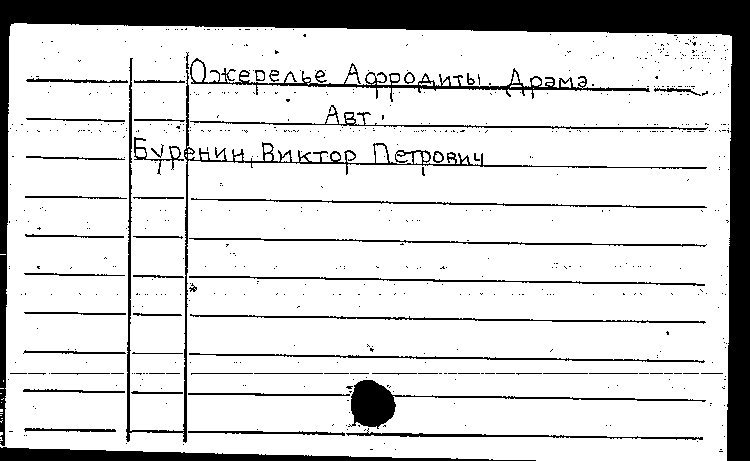 Ожерелье Афродиты. Драма.
Авт.:
Буренин, Виктор Петрович